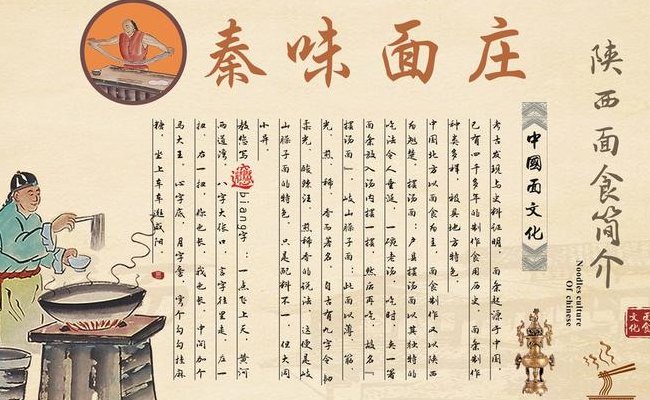 秦味面庄
陕西面食简介
Noodles culture
Of chinese
中國面文化
考古发现与史料证明，面条起源于中国，
已有四千多年的制作食用历史，面条制作
种类多样，极具地方特色
中国北方以面食为主，面食制作又以陕西
为翘楚，摆汤面：户县摆汤面以其独特的
吃法令人垂涎，一碗老汤，吃时，夹一箸
面条放入汤内摆一摆，然后再吃，故名“
摆汤面”，岐山臊子面：此面以薄、筋、
光、煎、稀、香而著名，自古有九字令韧
柔光，酸辣汪，煎稀香的说法，这便是岐
山臊子面的特色，只是配料不一，但大同
小异。
教您写biang字：一点飞上天，黄河
两道湾，八字大张口，言字往里走，左一
扭，右一扭，你也长，我也长，中间加个
马大王，心字底，月字旁，穿个勾勾挂麻
糖，坐上车车逛咸阳。
面食文化